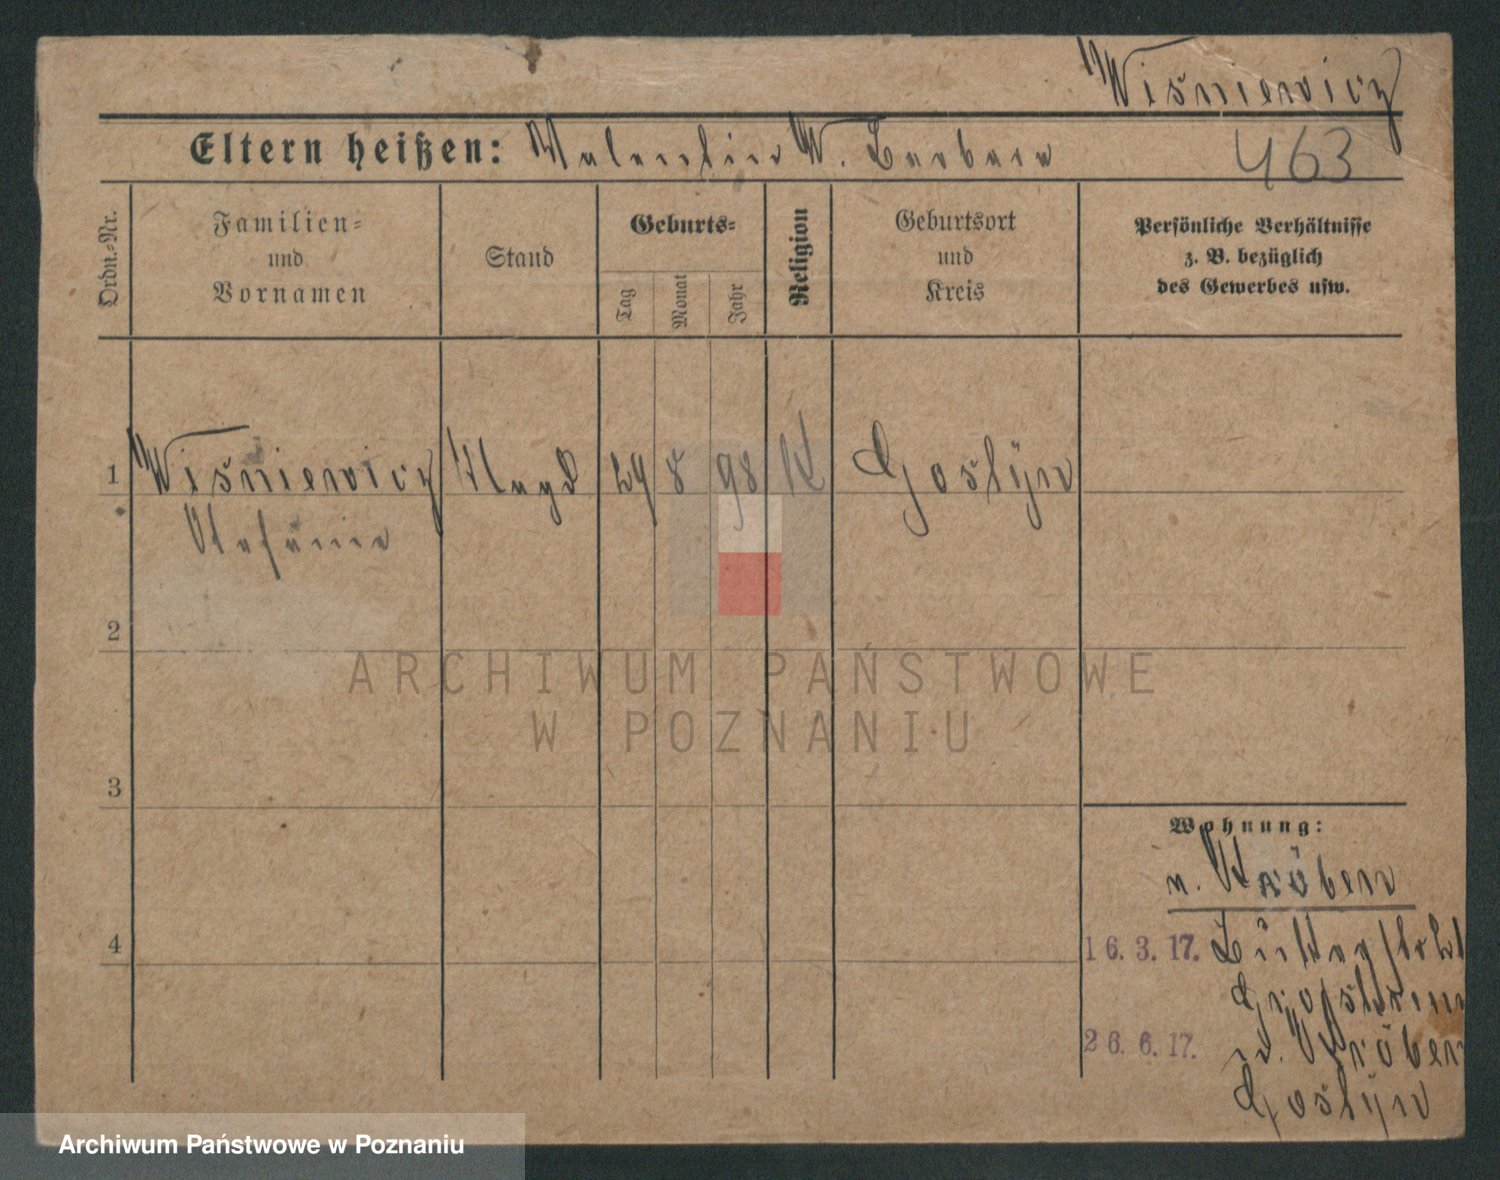 Wiśniewicz
Eltern heißen: Valentin W. Barbara
463
Ordn.-Nr.
Familien-
und
Vornamen
Stand
Geburts-
Tag
Monat
Jahr
Religion
Geburtsort
und
Kreis
Persönliche Verhältnisse
z. B. bezüglich
des Gewerbes usw.
1
Wiśniewicz
Magd
29
8
98
K
Gostyn
Stefania
2
ARCHIWUM PAŃSTWOWE
W POZNANIU
3
Wohnung:
n. Kröben
4
16. 3. 17.
26. 6. 17.
Kröben
Gostyn
Archiwum Państwowe w Poznaniu